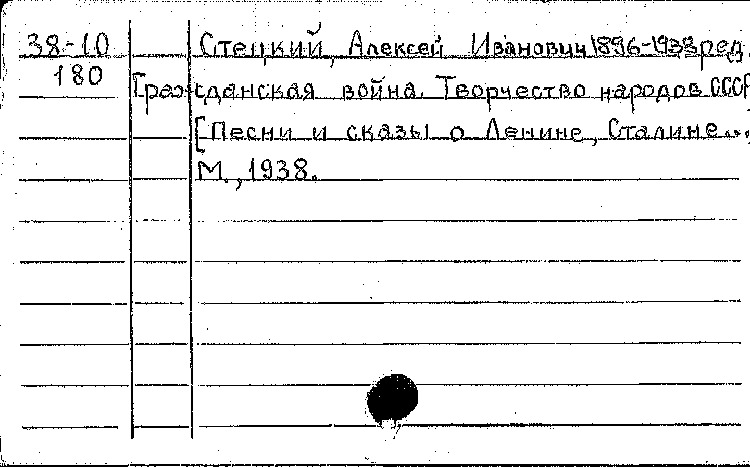 38-10 Стецкий, Алексей Иванович 1896-1938 ред.
180 Гражданская война. Творчество народов СССР
[Песни и сказы о Ленине, Сталине...,
М., 1938.